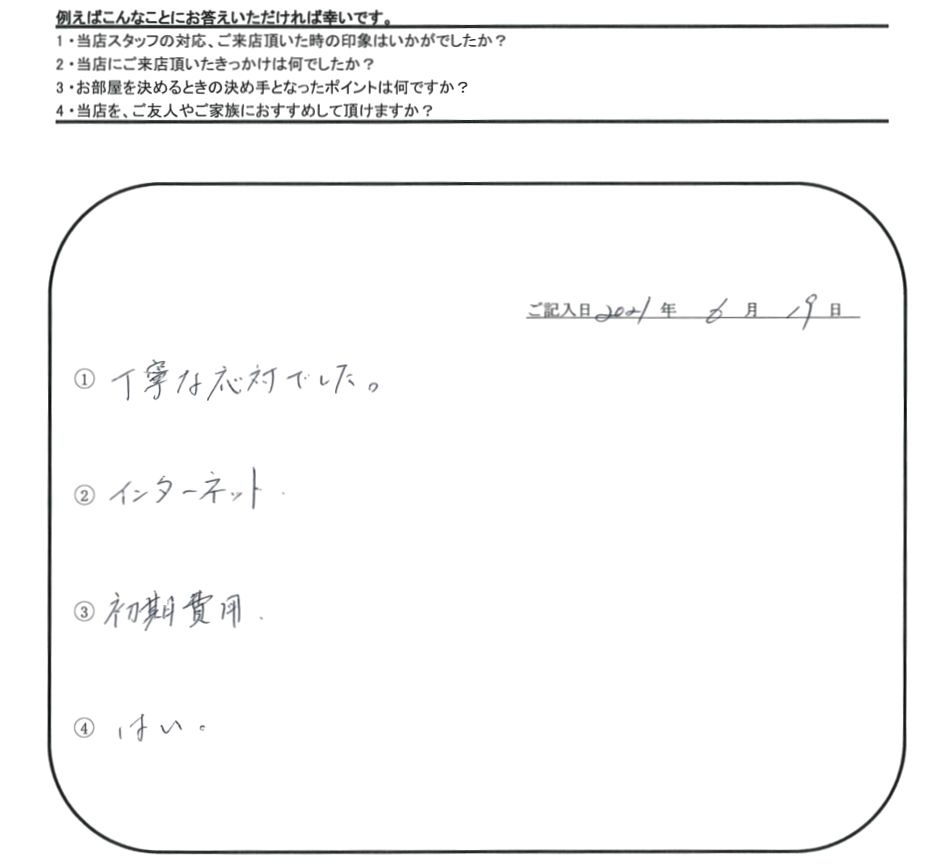 例えばこんなことにお答えいただければ幸いです。
1・当店スタッフの対応、ご来店頂いた時の印象はいかがでしたか？
2・当店にご来店頂いたきっかけは何でしたか？
3・お部屋を決めるときの決め手となったポイントは何ですか？
4・当店を、ご友人やご家族におすすめして頂けますか？
ご記入日 2021 年 6 月 19 日
① 丁寧な応対でした。
② インターネット.
③ 初期費用.
④ はい。